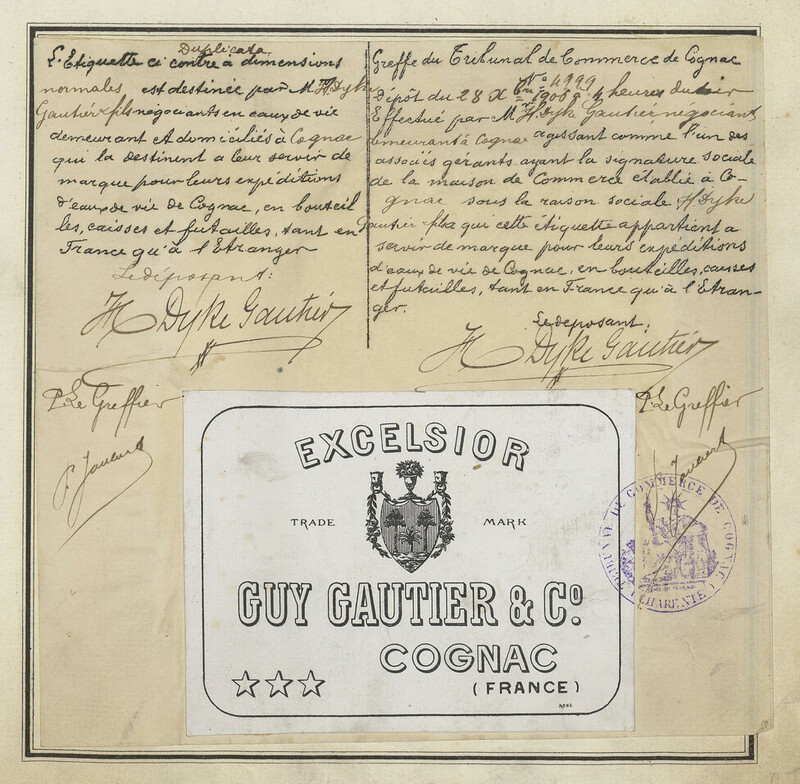 Duplicata
L'Etiquette ci contre à dimensions
normales est destinée par M H Dyke
Gautier & fils négociants en eaux de vie
demeurant et domiciliés à Cognac
qui la destinent a leur servir de
marque pour leurs expéditions
d'eaux de vie de Cognac, en bouteil
les, caisses et futailles, tant en
France qu'à l'Etranger
Le déposant:
H Dyke Gautier
P. Le Greffier
Greffe du Tribunal de Commerce de Cognac
No 4999
Dépôt du 28 X bre 1905 à 4 heures du soir
Effectué par M H. Dyke Gautier, négociant
demeurant à Cognac agissant comme l'un des
associés gérants ayant la signature sociale
de la maison de Commerce établie à Co-
gnac sous la raison sociale H Dyke
Gautier & fils qui cette étiquette appartient a
servir de marque pour leurs expéditions
d'eaux de vie de Cognac, en bouteilles, caisses
et futailles, tant en France qu'à l'Etran-
ger.
Le déposant:
H Dyke Gautier
P. Le Greffier
EXCELSIOR
TRADE MARK
GUY GAUTIER & Co.
COGNAC
(FRANCE)
TRIBUNAL DE COMMERCE DE COGNAC
(CHARENTE)